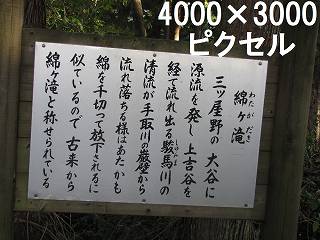 4000×3000
ピクセル
綿ヶ滝
わたがだき
三ツ屋野の大谷に
源流を発し上吉谷を
経て流れ出る駿馬川の
しゅんめ
清流が手取川の巌壁から
流れ落ちる様はあたかも
綿を千切って放下されるに
似ているので古来から
綿ヶ滝と称せられている